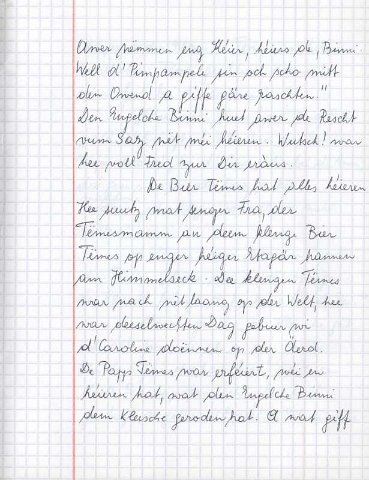 Awer nëmmen eng Kéier, héiers de, Binni.
Well d'Pimpampele sin och scho mitt
den Owend a giffe gäre raschten."
Den Engelche Binni huet awer de Rescht
vum Saz nët méi héieren. Wutsch! war
hee voll Fred zur Dir eraus.
De Bier Tëmes hat alles héieren
Hee suutz mat senger Fra, der
Tëmesmamm an deem klenge Bier
Tëmes op enger héiger Etagär hannen
am Himmelseck. Dee klengen Tëmes
war nach nit laang op der Welt, hee
war deeselwechten Dag gebuer wi
d'Caroline doënnen op der Äerd.
De Papp Tëmes war erféiert, wéi en
héieren hat, wat den Engelche Binni
dem Kleesche geroden hat. A wat giff